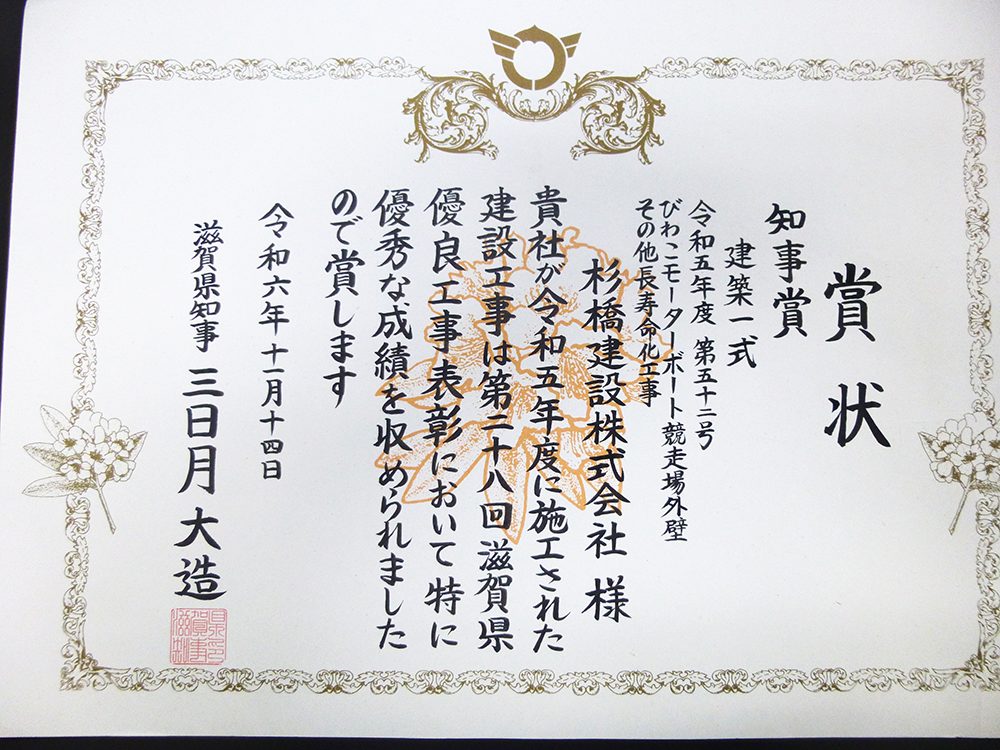 賞状
知事賞
建築一式
令和五年度 第五十二号
びわこモーターボート競走場外壁
その他長寿命化工事
杉橋建設株式会社 様
貴社が令和五年度に施工された
建設工事は第二十八回滋賀県
優良工事表彰において特に
優秀な成績を収められました
ので賞します
令和六年十一月十四日
滋賀県知事 三日月大造